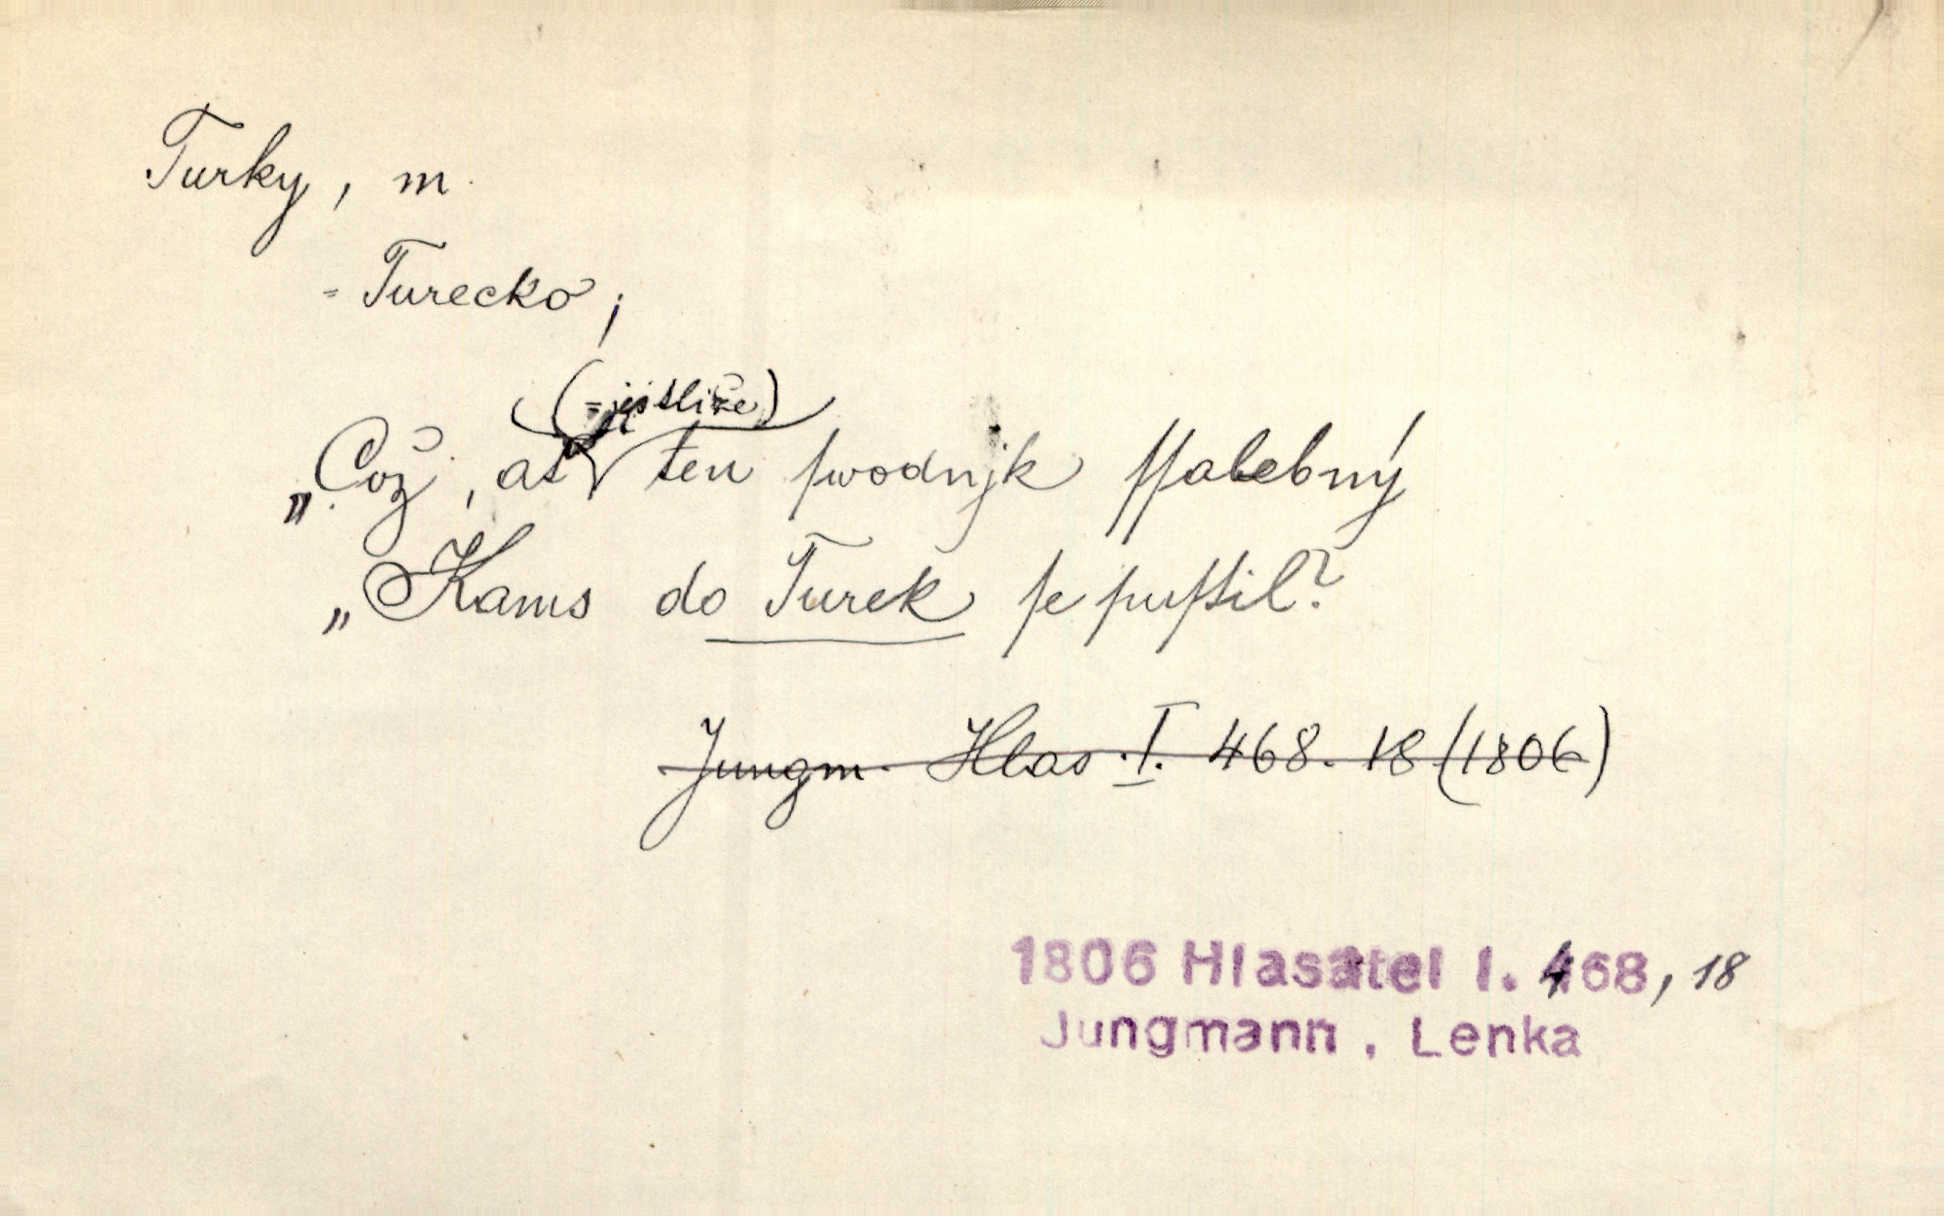 Turky, m.
= Turecko;
(= jestliže)
„Což, ač ten ſwodnjk ſſalebný
„Kams do Turek ſe puſtil?
Jungm. Hlas. I. 468. 18 (1806)
1806 Hlasatel I. 468, 18
Jungmann, Lenka